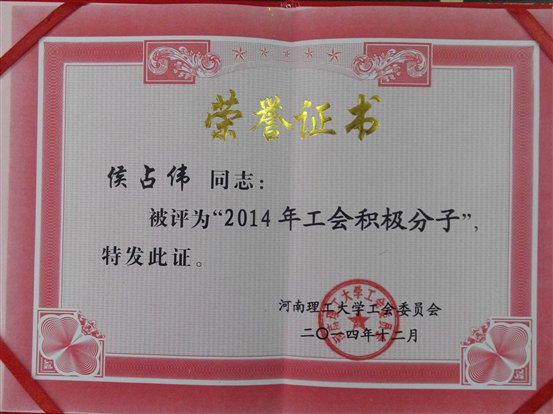 荣誉证书
侯占伟 同志：
被评为“2014年工会积极分子”，
特发此证。
河南理工大学工会委员会
二〇一四年十二月
河南理工大学工会委员会